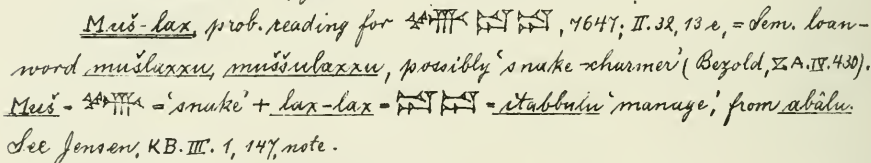 Muš-lax, prob. reading for , 7647; II. 32, 13 e, = Sem. loan-
word mušlaxxu, muššulaxxu, possibly 'snake-charmer' (Bezold, ZA. IV. 430).
Muš = = 'snake' + lax-lax = = itabbulu 'manage,' from abâlu.
See Jensen, KB. III. 1, 147, note.